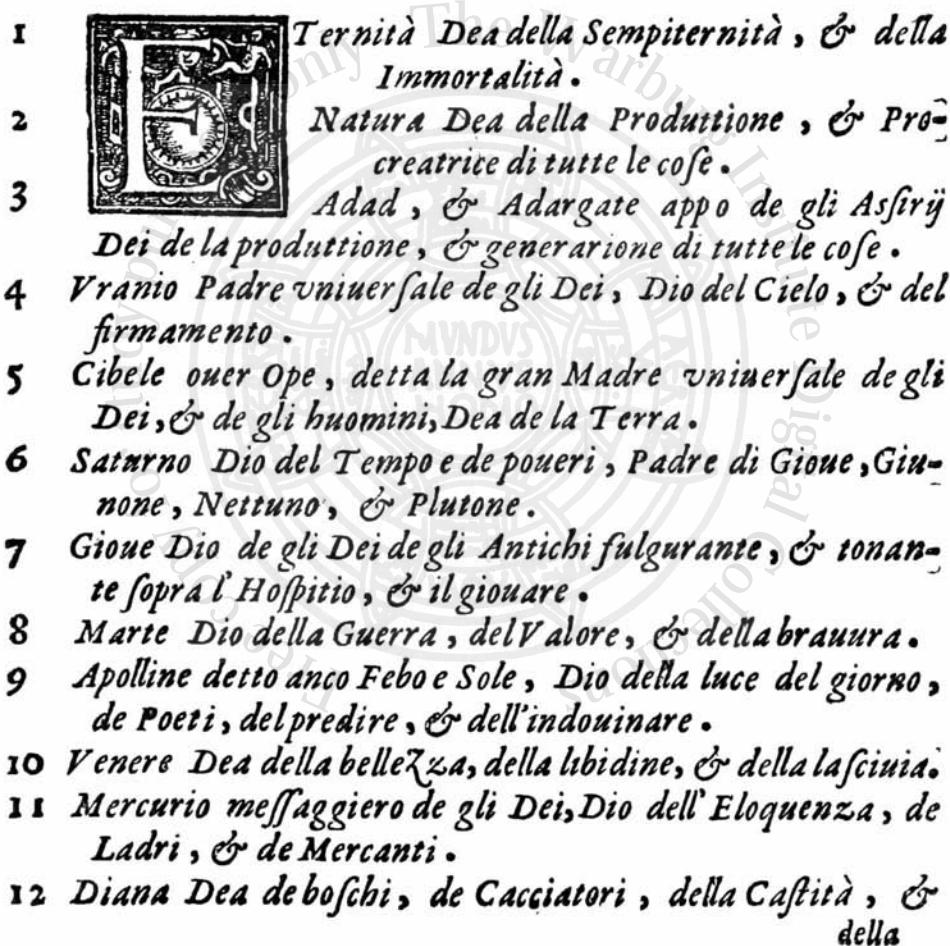 1 ETernità Dea della Sempiternità, & della
Immortalità.
2 Natura Dea della Produttione, & Pro-
creatrice di tutte le coſe.
3 Adad, & Adargate appo de gli Aſſirij
Dei de la produttione, & generarione di tutte le coſe.
4 Vranio Padre vniuerſale de gli Dei, Dio del Cielo, & del
firmamento.
5 Cibele ouer Ope, detta la gran Madre vniuerſale de gli
Dei, & de gli huomini, Dea de la Terra.
6 Saturno Dio del Tempo e de poueri, Padre di Gioue, Giu-
none, Nettuno, & Plutone.
7 Gioue Dio de gli Dei de gli Antichi fulgurante, & tonan-
te ſopra l'Hoſpitio, & il giouare.
8 Marte Dio della Guerra, del Valore, & della brauura.
9 Apolline detto anco Febo e Sole, Dio della luce del giorno,
de Poeti, del predire, & dell'indouinare.
10 Venere Dea della bellezza, della libidine, & della laſciuia.
11 Mercurio meſſaggiero de gli Dei, Dio dell'Eloquenza, de
Ladri, & de Mercanti.
12 Diana Dea de boſchi, de Cacciatori, della Caſtità, &
della